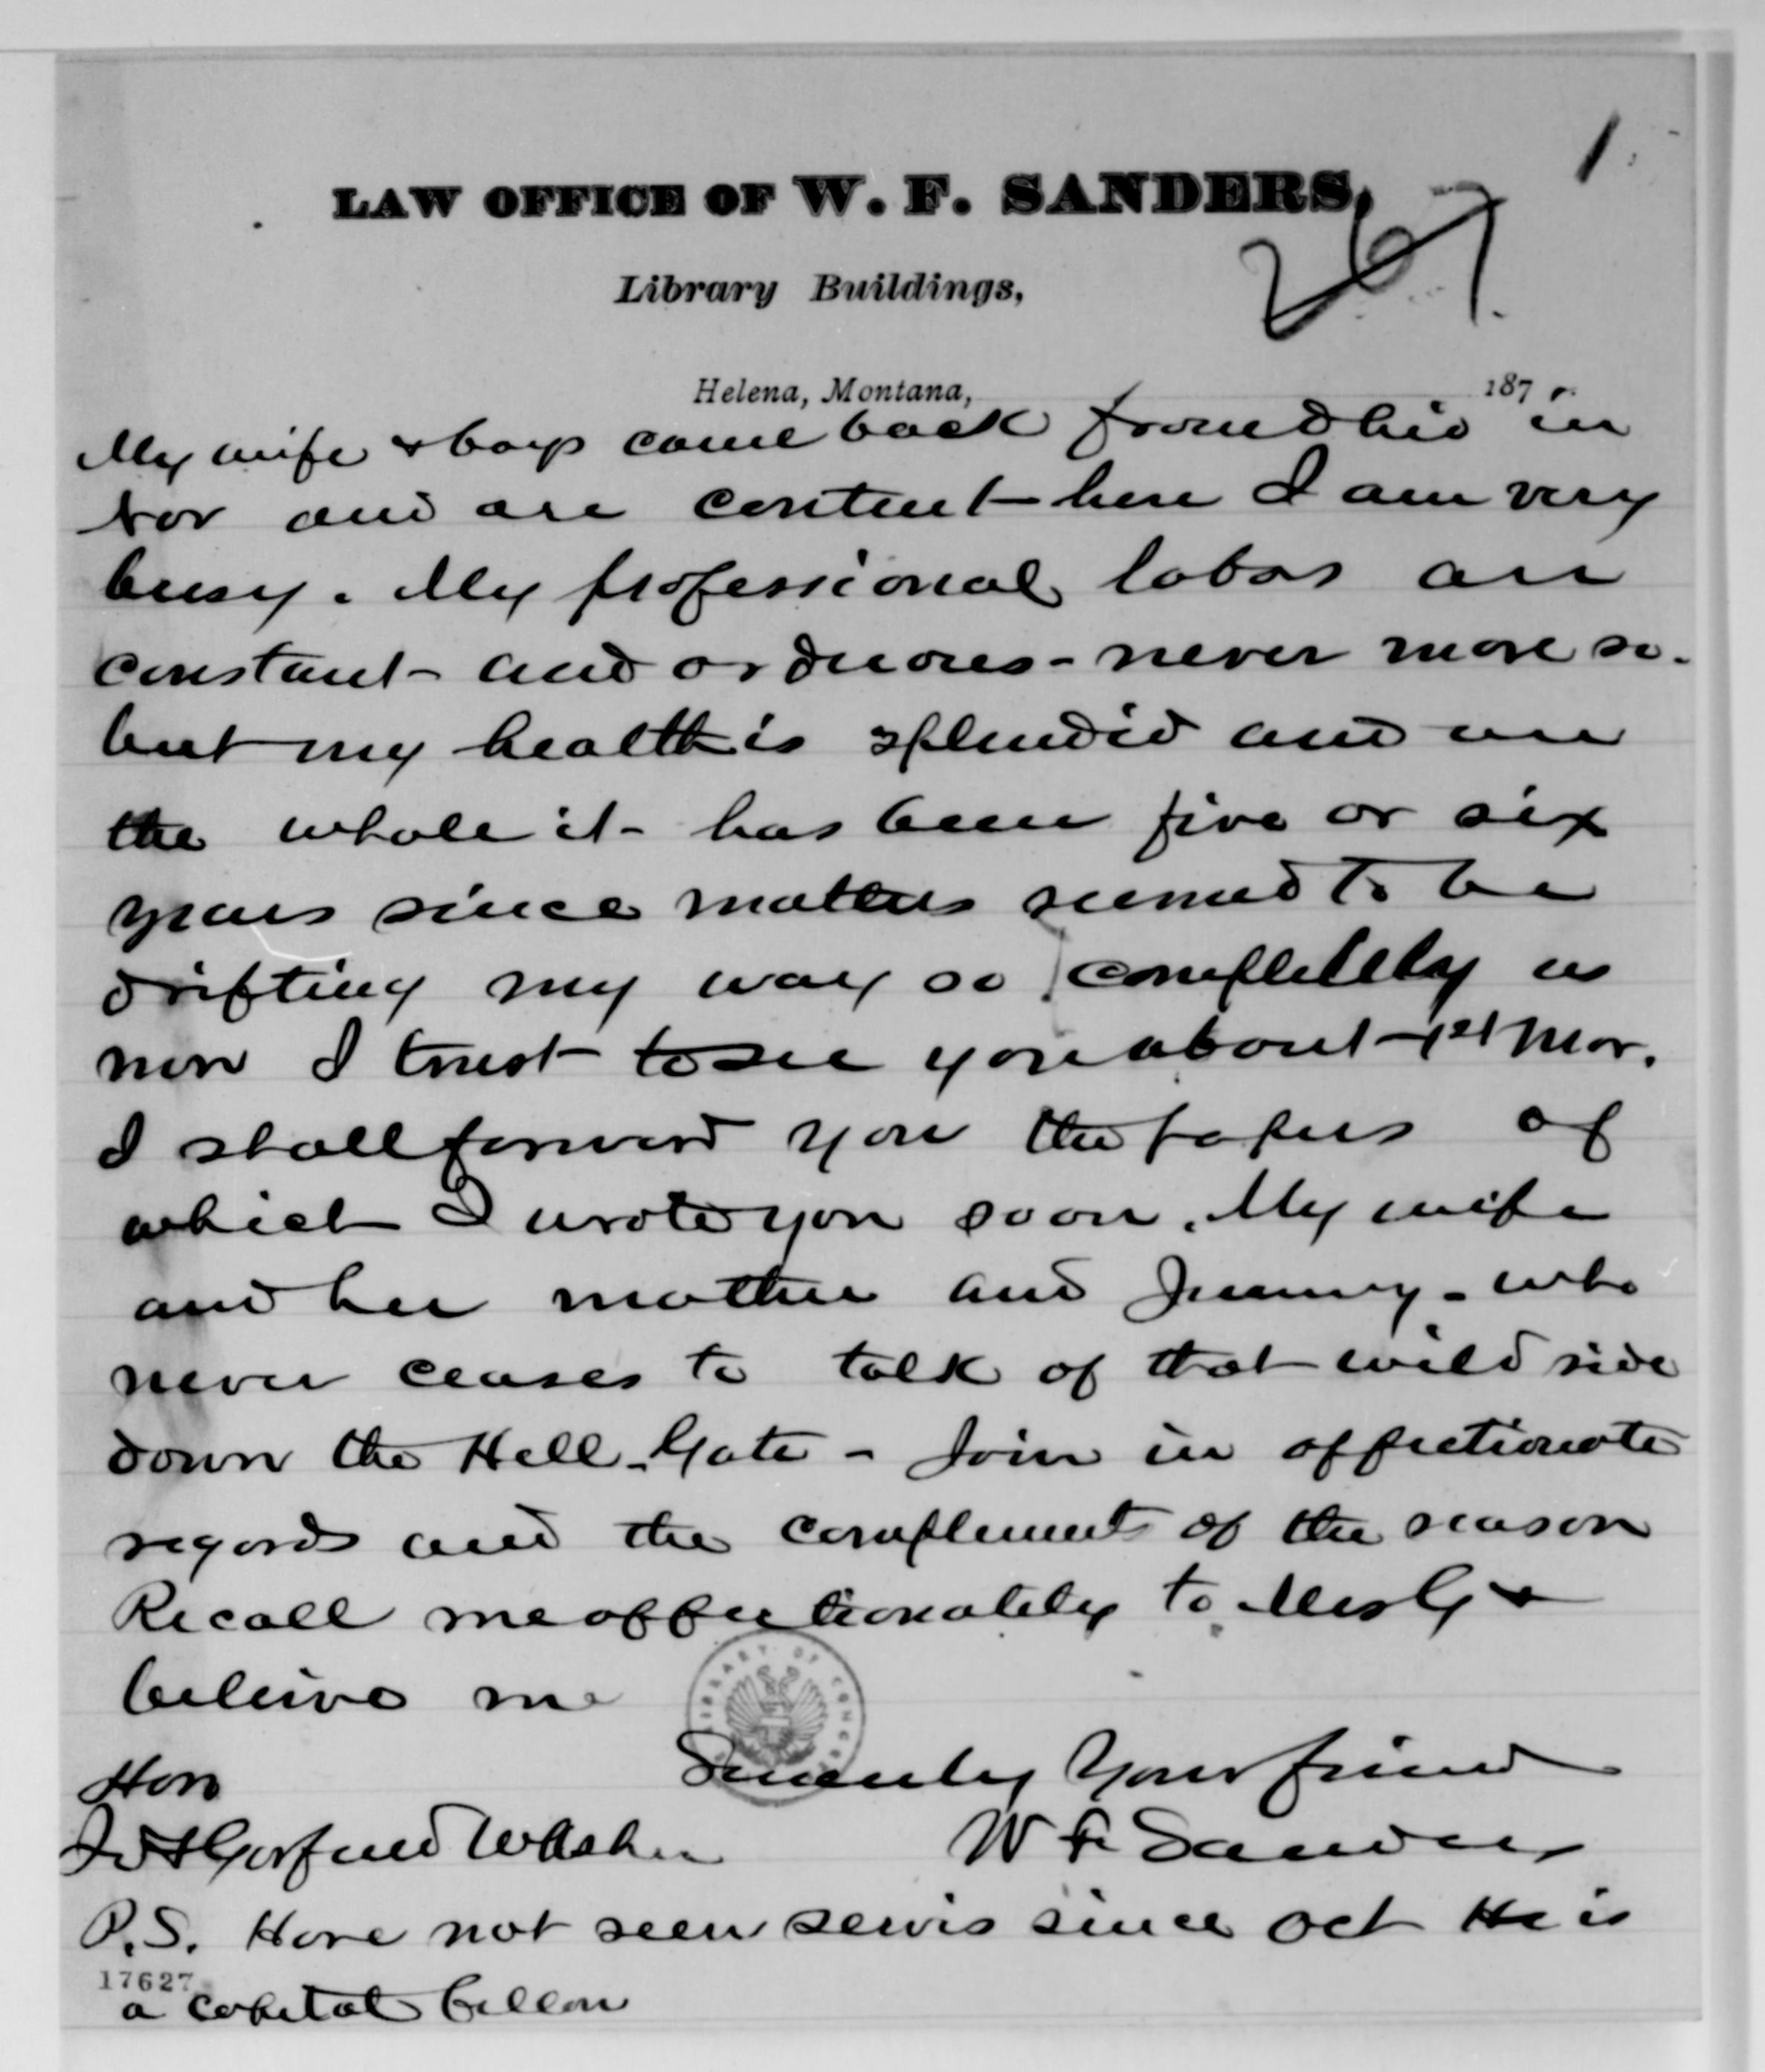 1
LAW OFFICE OF W. F. SANDERS,
267
Library Buildings,
Helena, Montana, 187
My wife & boys came back from Ohio in
Nov and are content here I am very
busy. My professional labors are
constant and arduous - never more so.
but my health is splendid and on
the whole it has been five or six
years since matters seemed to be
drifting my way so completely as
now I trust to see you about 1st Mar.
I shall forward you the papers of
which I wrote you soon. My wife
and her mother and Jimmy - who
never ceases to talk of that wild ride
down the Hell-Gate - Join in affectionate
regards and the compliments of the season
Recall me affectionately to Mrs G &
believe me
LIBRARY OF CONGRESS
Hon Sincerely Your friend
Garfield W F Sanders
P.S. Have not seen since Oct He is
17627
a capital fellow